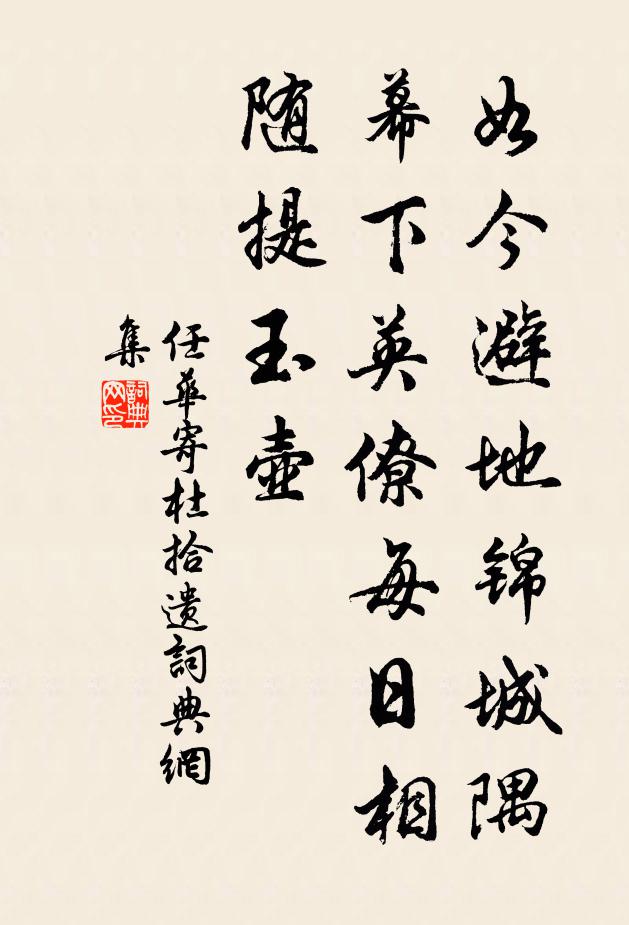 如今避地锦城隅
幕下英僚每日相
随提玉壶
任華寄杜拾遗詞典網
集
詞典网印